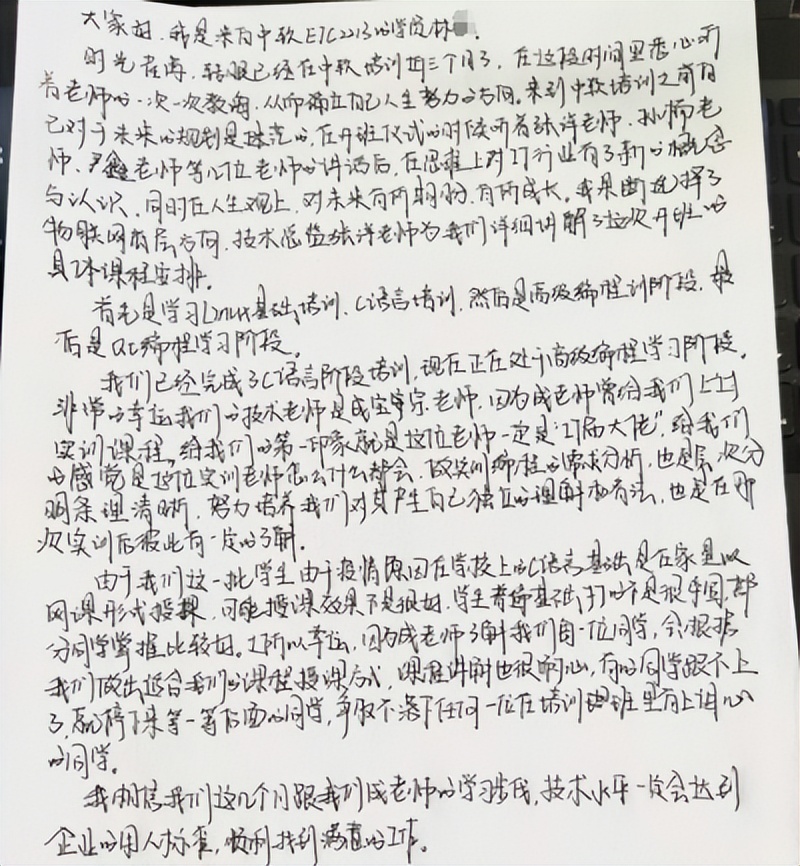 大家好,我是来自中软ETC2213的学员林
时光荏苒,转眼已经在中软培训近三个月了,在这段时间里悉心听
着老师的一次一次教诲,从而确立自己人生努力的方向。来到中软培训之前自
己对于未来的规划是迷茫的,在开班仪式的时候听着张洋老师、孙杨老
师、尹鑫老师等几位老师的讲话后,在思维上对IT行业有了新的概念
与认识,同时在人生观上,对未来有所期盼,有所成长。我果断选择了
物联网底层方向,技术总监张洋老师为我们详细讲解了这次开班的
具体课程安排。
首先是学习Linux基础培训、C语言培训,然后是高级编程训阶段,最
后是Qt编程学习阶段。
我们已经完成了C语言阶段培训,现在正在处于高级编程学习阶段,
非常的幸运我们的技术老师是成宝宗老师,因为成老师曾给我们上过
实训课程,给我们的第一印象就是这位老师一定是“IT届大佬”,给我们
的感觉是这位实训老师怎么什么都会,做实训编程的需求分析,也是层次分
明条理清晰,努力培养我们对其产生自己独立的理解和看法,也是在那
次实训后彼此有一定的了解。
由于我们这一批学生由于疫情原因在学校上的C语言基础是在家里以
网课形式授课,可能授课效果不是很好,学生普遍基础打的不是很牢固,部
分同学掌握比较好。所以幸运,因为成老师了解我们每一位同学,会根据
我们做出适合我们的课程授课方式,课程讲解也很耐心,有的同学跟不上
了,就停下来等一等后面的同学,争取不落下任何一位在培训班里有上进心
的同学。
我相信我们这几个月跟我们成老师的学习步伐,技术水平一定会达到
企业的用人标准,顺利找到满意的工作。